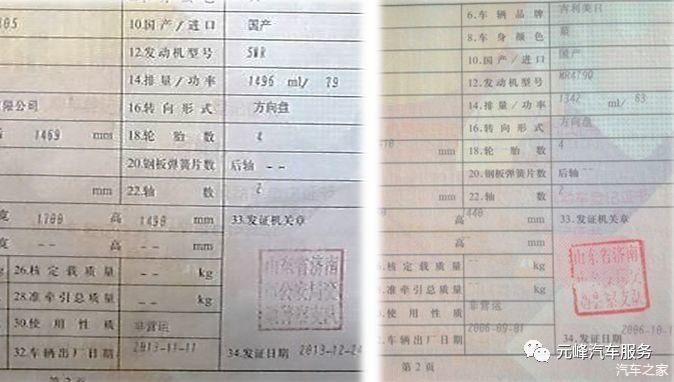 10.国产/进口 国产
12.发动机型号 5MR
14.排量/功率 1496 ml/ 79
有限公司 16.转向形式 方向盘
1469 mm 18.轮胎数
20.钢板弹簧片数 后轴 --
mm 22.轴数 2
宽 1700 高 1490 mm 33.发证机关章
-- -- mm
kg 26.核定载质量 -- kg
kg 28.准牵引总质量 -- kg
30.使用性质 非营运
32.车辆出厂日期 2013-11-11 34.发证日期 2013-12-24
第2页
6.车辆品牌 吉利美日
8.车身颜色 蓝
10.国产/进口 国产
12.发动机型号 MR479Q
14.排量/功率 1342 ml/ 63
16.转向形式 方向盘
mm 18.轮胎数 4
20.钢板弹簧片数 后轴 --
mm 22.轴数 2
高 1440 mm 33.发证机关章
-- mm
核定载质量 -- kg
准牵引总质量 -- kg
使用性质 非营运
车辆出厂日期 2006-09-01 34.发证日期 2006-10-1
山东省济南
第2页
元峰汽车服务
汽车之家